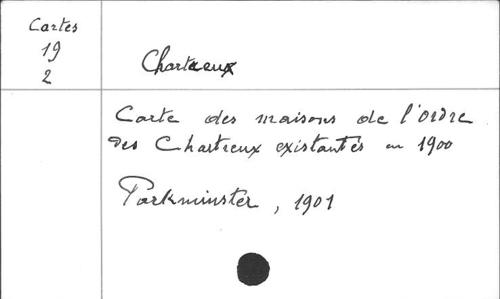 Cartes
19
2
Chartreux
Carte des maisons de l'ordre
des Chartreux existantes en 1900
Parkminster, 1901